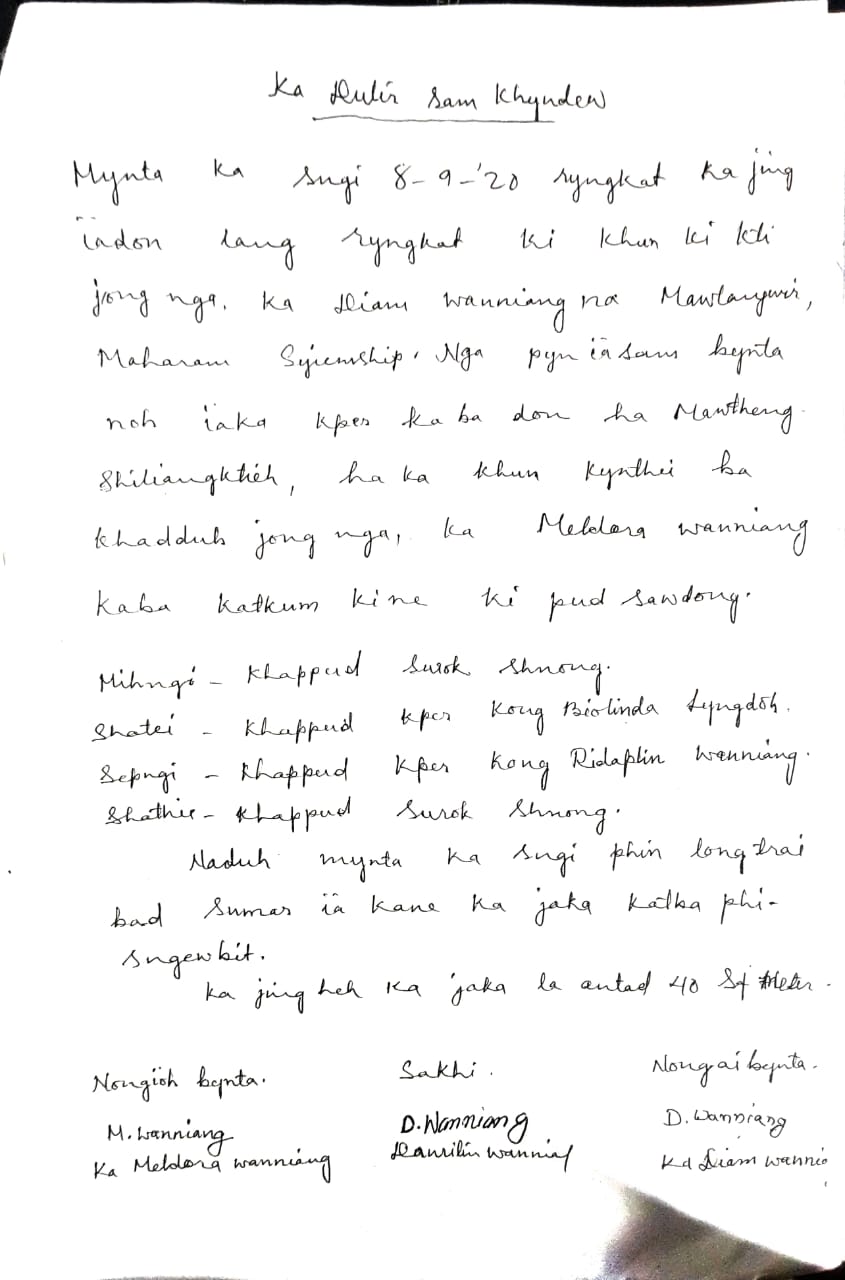 Ka Dulir Sam Khyndew
Mynta ka sngi 8-9-'20 ryngkat ka jing
ïadon lang ryngkat ki khun ki kti
jong nga. Ka Diam Wanniang na
Maharam Syiemship. Nga pyn ïa sam bynta
noh ïaka kper ka ba don ha Mawtheng
Shiliangktieh, ha ka khun kynthei ba
khadduh jong nga, ka Meldora wanniang
kaba katkum kine ki pud sawdong.
Mihngi - Khappud Surok Shnong.
Shatei - Khappud kper Kong Biolinda Lyngdoh.
Sepngi - Khappud kper Kong Ridaplin Wanniang.
Shathie - Khappud Surok Shnong.
Naduh mynta ka sngi phin long trai
bad Sumar ïa kane ka jaka katba phi-
sngewbit.
Ka jing heh ka jaka la antad 40 Sq Meter.
Nongïoh bynta. Sakhi. Nongai bynta.
M. Wanniang D. Wanniang D. Wanniang
Ka Meldora wanniang Ka Diam Wannia